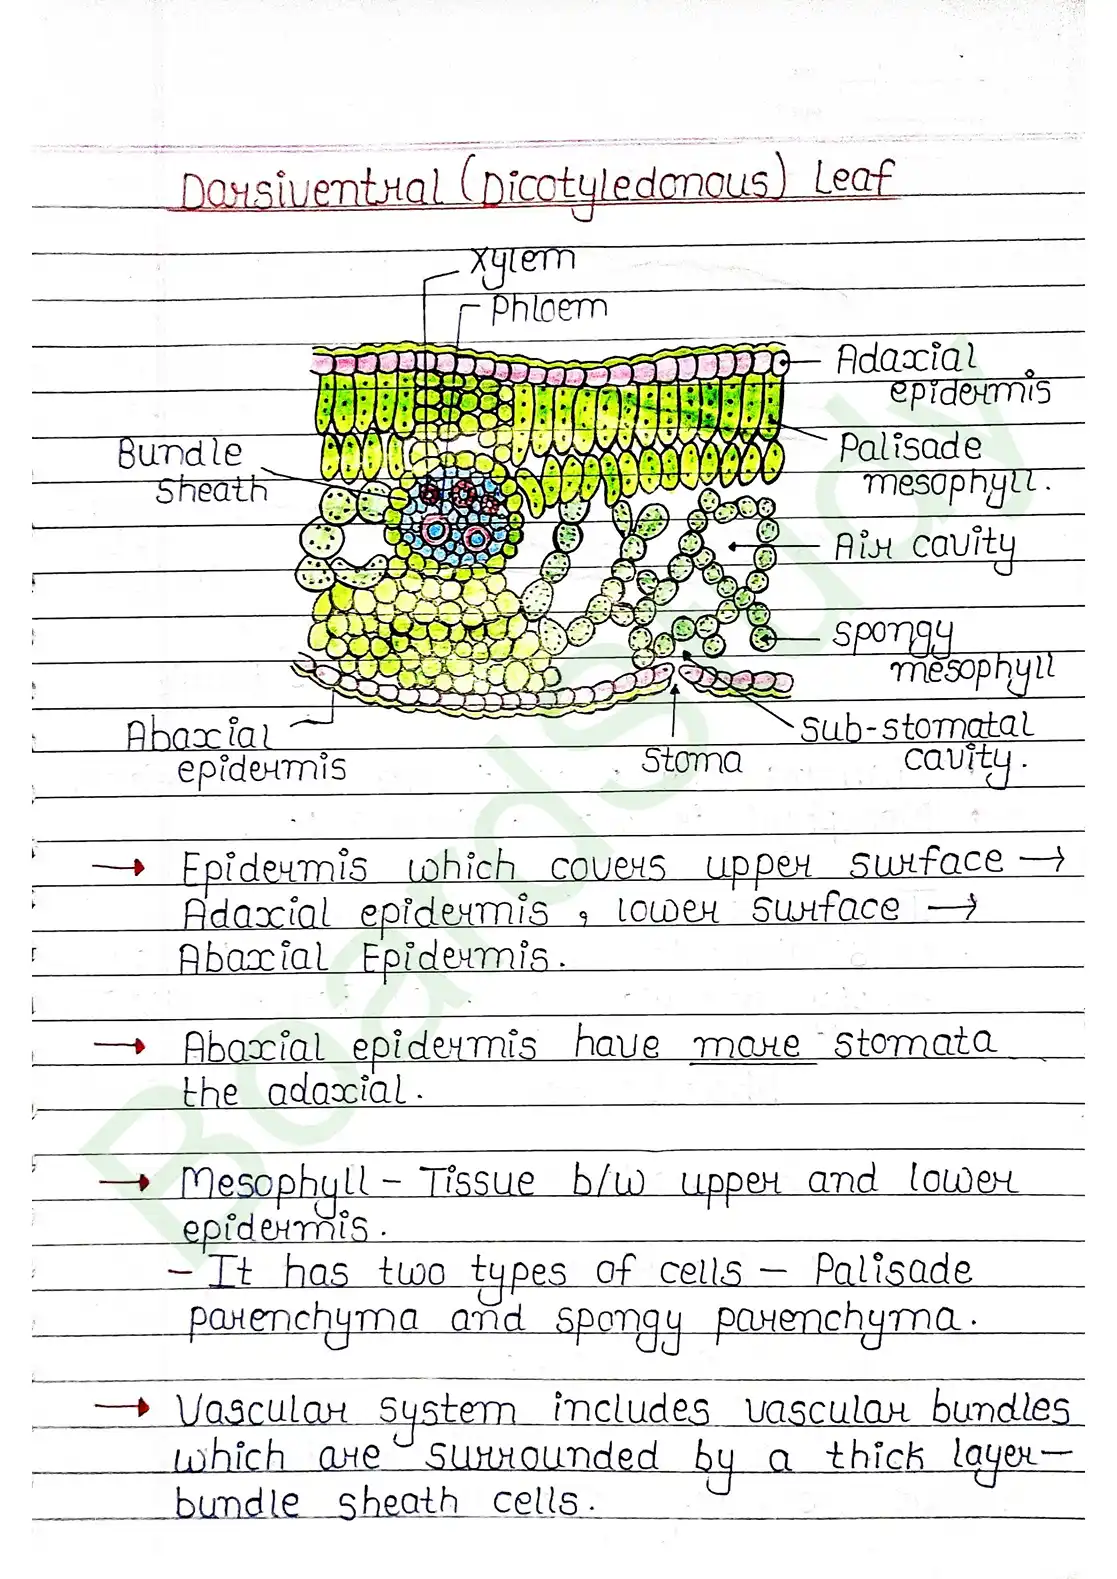 Dorsiventral (Dicotyledonous) Leaf
Xylem
Phloem
Adaxial
epidermis
Bundle
Sheath
Palisade
mesophyll.
Air cavity
spongy
mesophyll
Abaxial
epidermis
Stoma
Sub-stomatal
cavity.
→ Epidermis which covers upper surface →
Adaxial epidermis, lower surface →
Abaxial Epidermis.
→ Abaxial epidermis have more stomata
the adaxial.
→ Mesophyll - Tissue b/w upper and lower
epidermis.
- It has two types of cells - Palisade
parenchyma and spongy parenchyma.
→ Vascular system includes vascular bundles
which are surrounded by a thick layer-
bundle sheath cells.
BoardsStudy